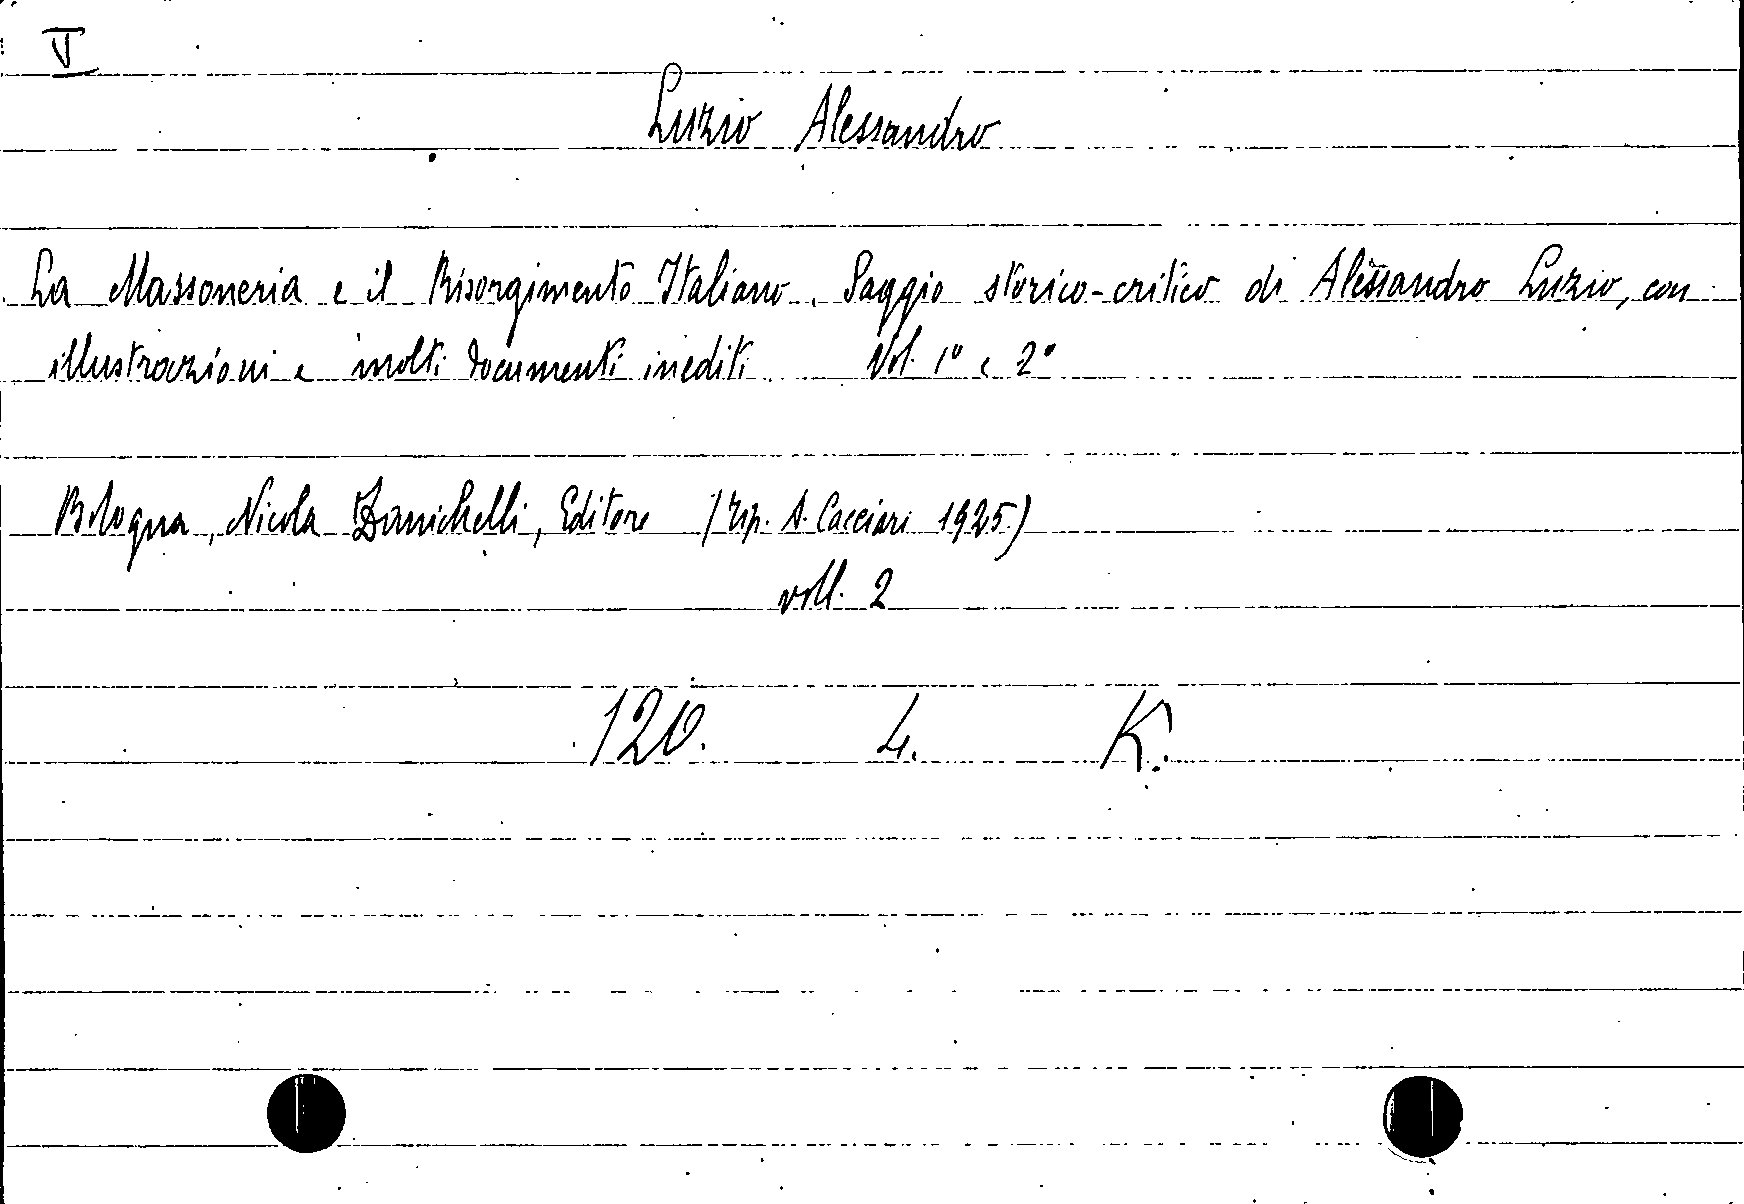 V
Luzio Alessandro
La Massoneria e il Risorgimento Italiano. Saggio storico-critico di Alessandro Luzio, con
illustrazioni e molti documenti inediti. Vol. 1º e 2º
Bologna, Nicola Zanichelli, Editore (Tip. A. Cacciari 1925.)
voll. 2
120. L. K.